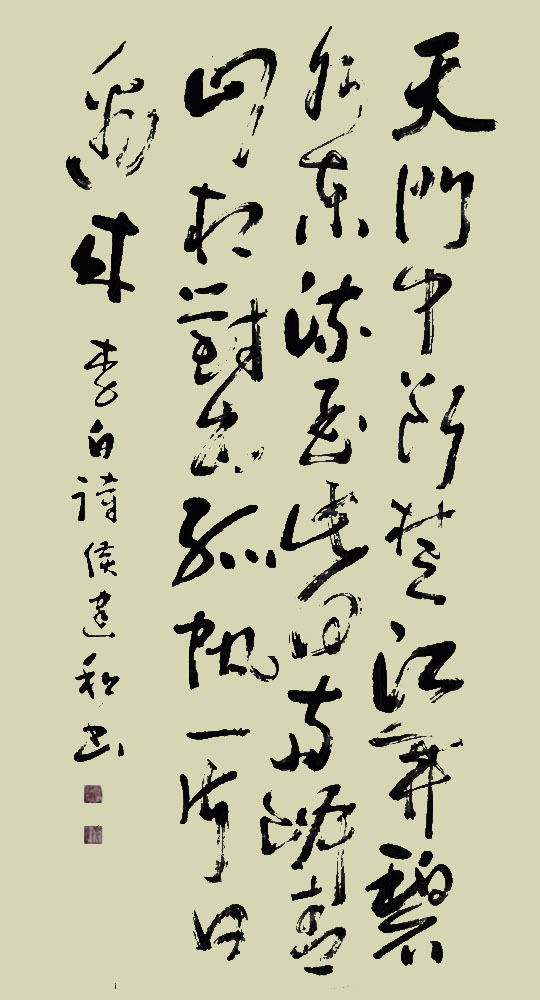 天門中断楚江開碧
水東流至此回兩岸青
山相對出孤帆一片日
邊來 李白詩 侯建和書